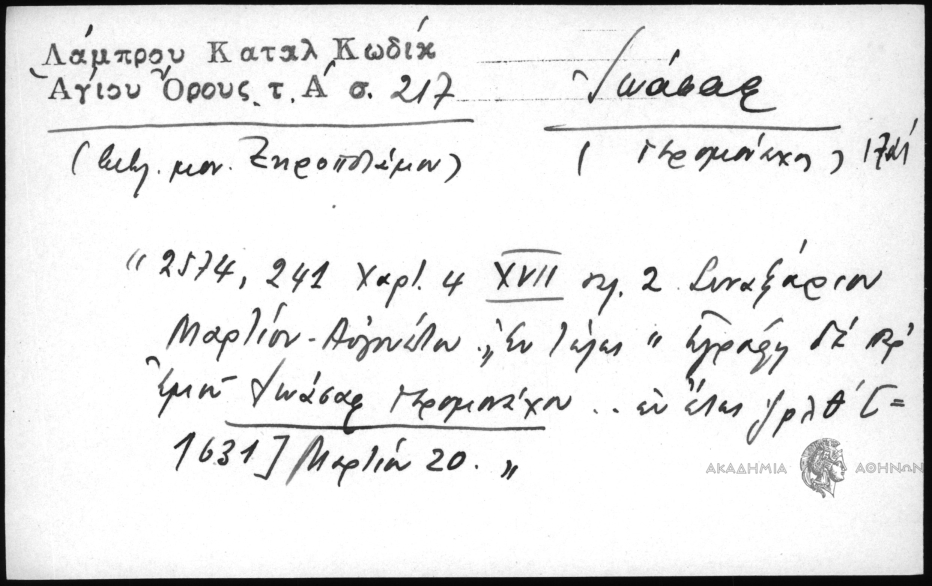 Λάμπρου Καταλ Κωδίκ
Αγίου Όρους τ. Α΄ σ. 217
Ιωάσαφ
(βιβλ. μον. Ξηροποτάμου)
(Ιερομονάχος)
"2574, 241 Χαρτ. 4 XVII σελ. 2 Συναξάριον
Μαρτίου - Αυγούστου. „Εν τέλει " Εγράφη δέ παρ'
Εμού Ιωάσαφ Ιερομονάχου .. εν έτει ζρλθ΄ [=
1631] Μαρτίου 20. "
ΑΚΑΔΗΜΙΑ ΑΘΗΝΩΝ